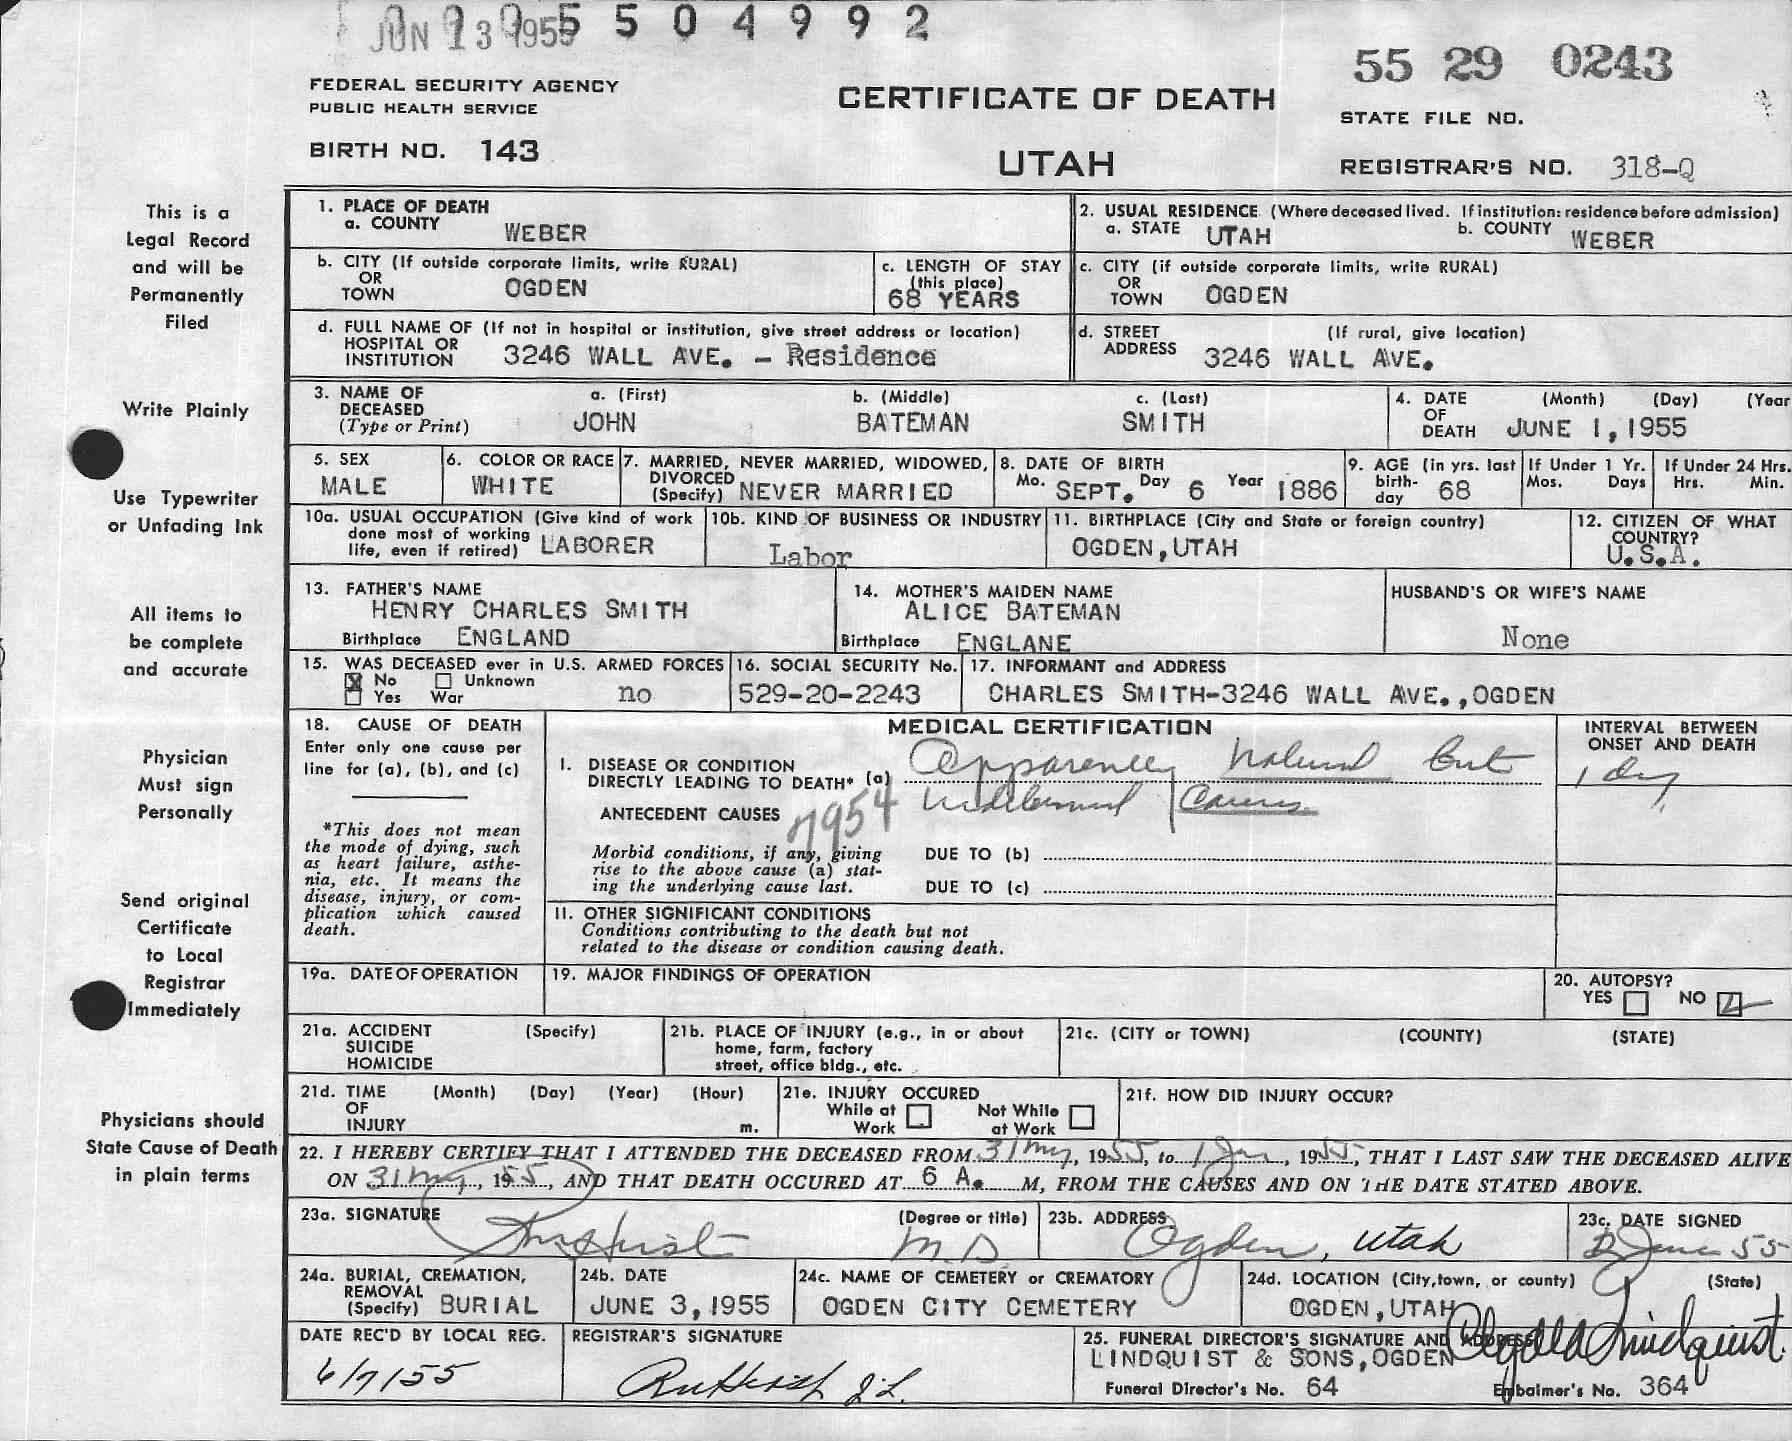 JUN 13 1955 5 5 0 4 9 9 2
55 29 0243
FEDERAL SECURITY AGENCY
PUBLIC HEALTH SERVICE
CERTIFICATE OF DEATH
STATE FILE NO.
BIRTH NO. 143
UTAH
REGISTRAR'S NO. 318-Q
This is a
Legal Record
and will be
Permanently
Filed
Write Plainly
Use Typewriter
or Unfading Ink
All items to
be complete
and accurate
Physician
Must sign
Personally
Send original
Certificate
to Local
Registrar
Immediately
Physicians should
State Cause of Death
in plain terms
1. PLACE OF DEATH
a. COUNTY WEBER
2. USUAL RESIDENCE (Where deceased lived. If institution: residence before admission)
a. STATE UTAH b. COUNTY WEBER
b. CITY (If outside corporate limits, write RURAL)
OR
TOWN OGDEN
c. LENGTH OF STAY
(this place)
68 YEARS
c. CITY (if outside corporate limits, write RURAL)
OR
TOWN OGDEN
d. FULL NAME OF (If not in hospital or institution, give street address or location)
HOSPITAL OR
INSTITUTION 3246 WALL AVE. - Residence
d. STREET (If rural, give location)
ADDRESS 3246 WALL AVE.
3. NAME OF
DECEASED
(Type or Print)
a. (First) b. (Middle) c. (Last)
JOHN BATEMAN SMITH
4. DATE (Month) (Day) (Year
OF
DEATH JUNE 1, 1955
5. SEX
MALE
6. COLOR OR RACE
WHITE
7. MARRIED, NEVER MARRIED, WIDOWED,
DIVORCED
(Specify) NEVER MARRIED
8. DATE OF BIRTH
Mo. SEPT. Day 6 Year 1886
9. AGE (in yrs. last
birth-
day 68
If Under 1 Yr.
Mos. Days
If Under 24 Hrs.
Hrs. Min.
10a. USUAL OCCUPATION (Give kind of work
done most of working
life, even if retired) LABORER
10b. KIND OF BUSINESS OR INDUSTRY
Labor
11. BIRTHPLACE (City and State or foreign country)
OGDEN, UTAH
12. CITIZEN OF WHAT
COUNTRY?
U.S.A.
13. FATHER'S NAME
HENRY CHARLES SMITH
Birthplace ENGLAND
14. MOTHER'S MAIDEN NAME
ALICE BATEMAN
Birthplace ENGLANE
HUSBAND'S OR WIFE'S NAME
None
15. WAS DECEASED ever in U.S. ARMED FORCES
X No Unknown
Yes War no
16. SOCIAL SECURITY No.
529-20-2243
17. INFORMANT and ADDRESS
CHARLES SMITH-3246 WALL AVE., OGDEN
18. CAUSE OF DEATH
Enter only one cause per
line for (a), (b), and (c)
*This does not mean
the mode of dying, such
as heart failure, asthe-
nia, etc. It means the
disease, injury, or com-
plication which caused
death.
MEDICAL CERTIFICATION
INTERVAL BETWEEN
ONSET AND DEATH
I. DISEASE OR CONDITION
DIRECTLY LEADING TO DEATH* (a) Apparency Natural but
1 day
ANTECEDENT CAUSES 7954 Undetermined Causes
Morbid conditions, if any, giving
rise to the above cause (a) stat-
ing the underlying cause last.
DUE TO (b)
DUE TO (c)
II. OTHER SIGNIFICANT CONDITIONS
Conditions contributing to the death but not
related to the disease or condition causing death.
19a. DATE OF OPERATION
19. MAJOR FINDINGS OF OPERATION
20. AUTOPSY?
YES NO
21a. ACCIDENT (Specify)
SUICIDE
HOMICIDE
21b. PLACE OF INJURY (e.g., in or about
home, farm, factory
street, office bldg., etc.
21c. (CITY or TOWN) (COUNTY) (STATE)
21d. TIME (Month) (Day) (Year) (Hour)
OF
INJURY m.
21e. INJURY OCCURED
While at Work Not While at Work
21f. HOW DID INJURY OCCUR?
22. I HEREBY CERTIFY THAT I ATTENDED THE DECEASED FROM 31 May, 1955, to 1 Jun, 1955, THAT I LAST SAW THE DECEASED ALIVE
ON 31 May, 1955, AND THAT DEATH OCCURED AT 6 A. M, FROM THE CAUSES AND ON THE DATE STATED ABOVE.
23a. SIGNATURE (Degree or title)
M.D.
23b. ADDRESS
Ogden, Utah
23c. DATE SIGNED
2 June 55
24a. BURIAL, CREMATION,
REMOVAL
(Specify) BURIAL
24b. DATE
JUNE 3, 1955
24c. NAME OF CEMETERY or CREMATORY
OGDEN CITY CEMETERY
24d. LOCATION (City, town, or county) (State)
OGDEN, UTAH
DATE REC'D BY LOCAL REG.
6/7/55
REGISTRAR'S SIGNATURE
25. FUNERAL DIRECTOR'S SIGNATURE AND ADDRESS
LINDQUIST & SONS, OGDEN Lindquist
Funeral Director's No. 64 Embalmer's No. 364